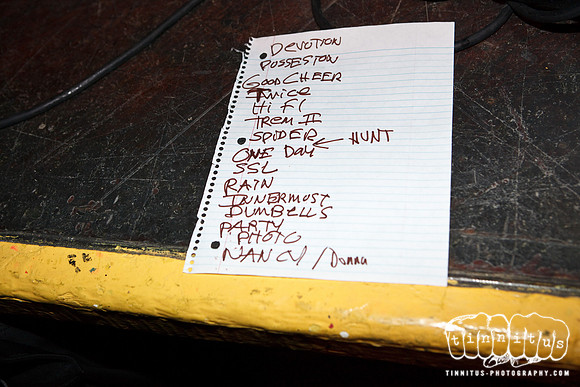 DEVOTION
POSSESTON
GOOD CHEER
Twice
Hi Fi
Trem II
SPIDER
HUNT
ONE DAY
SSL
RAIN
INNERMOST
DUMBELLS
PARTY
PHOTO
NANCY / Donna
tinnitus
TINNITUS-PHOTOGRAPHY.COM